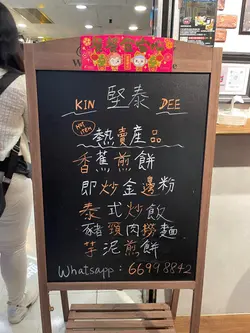 KIN 堅泰 DEE
HOT ITEM
熱賣產品
香蕉煎餅
即炒金邊粉
泰式炒飯
豬頸肉撈麵
芋泥煎餅
Whatsapp : 66998842